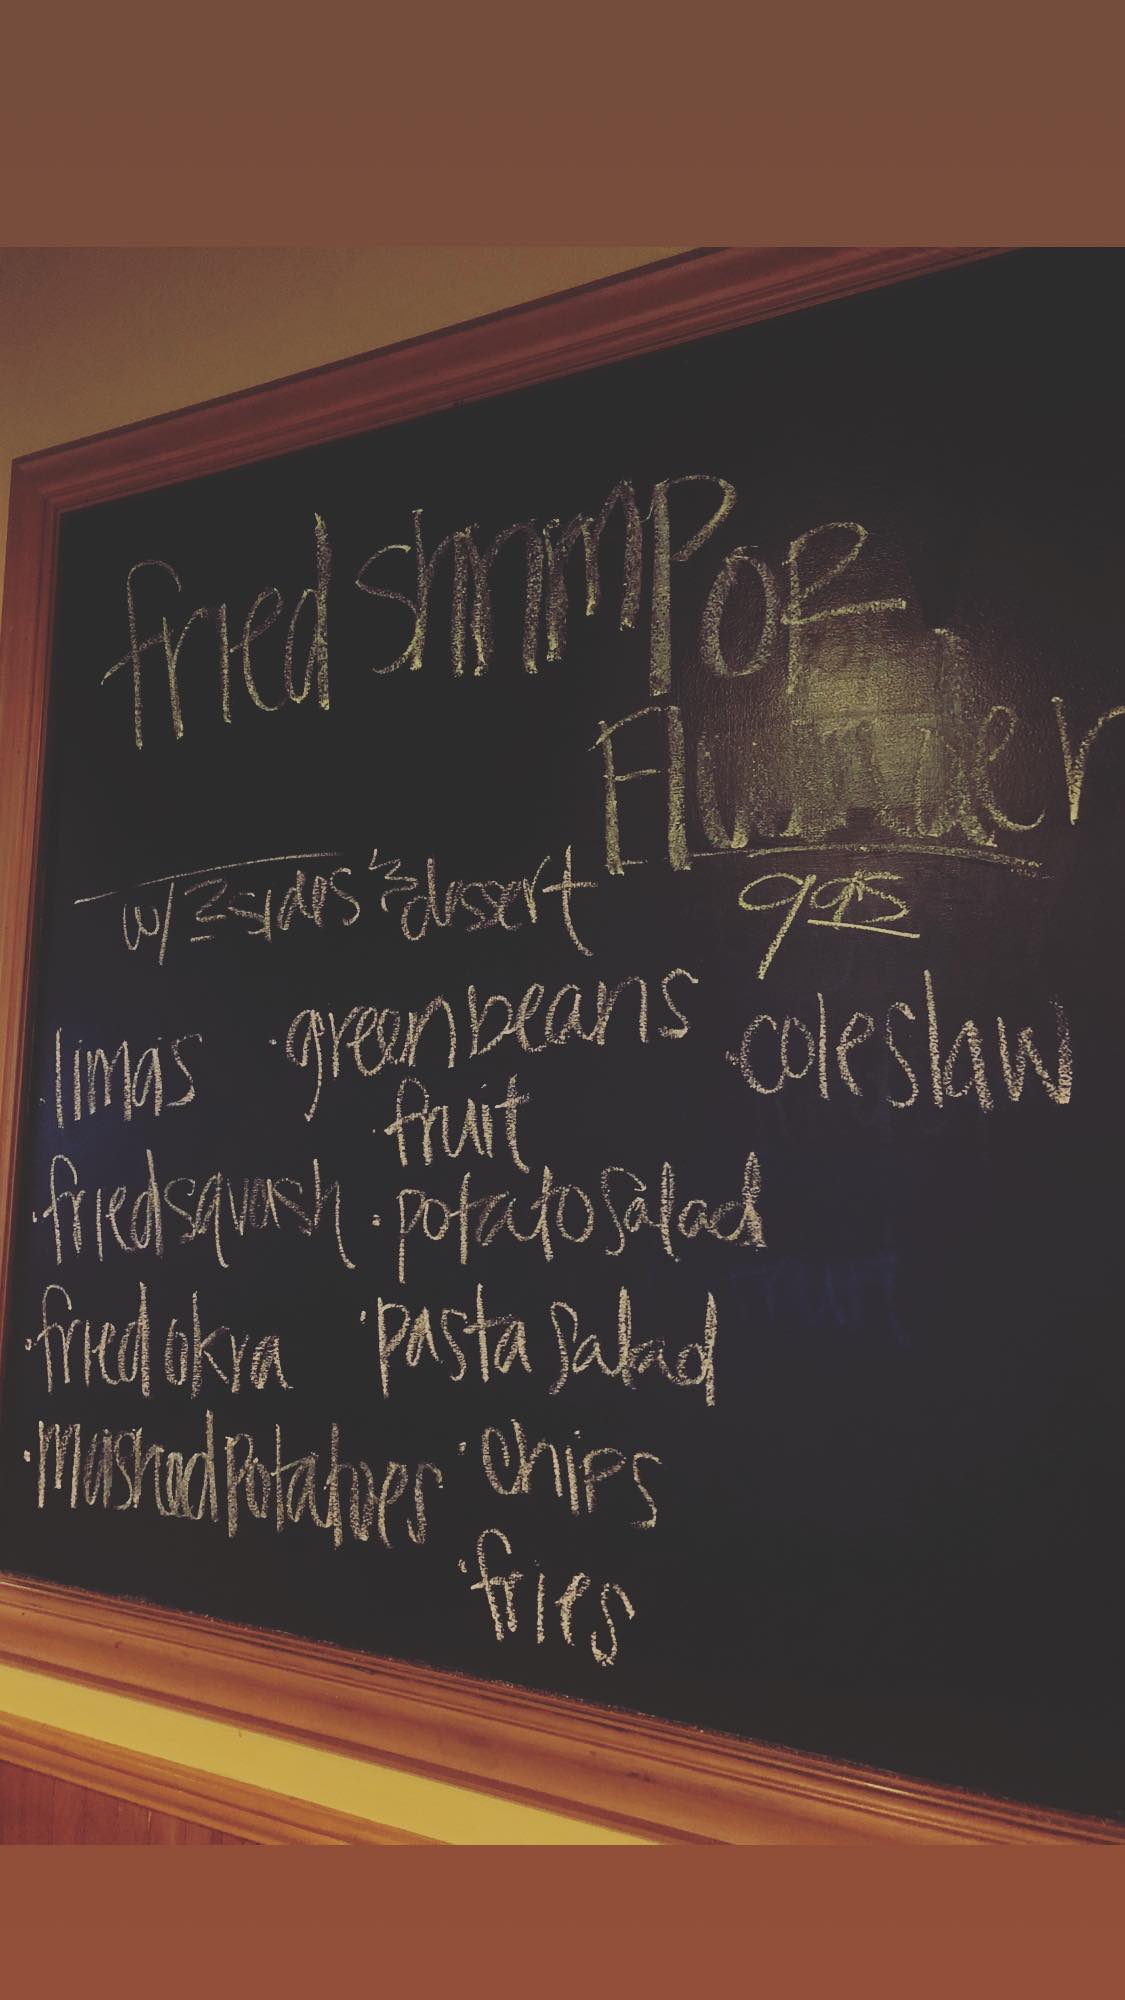 fried shrimp or
Flounder
w/ 2 sides & dessert 9.95
· limas · greenbeans · coleslaw
· fruit
· fried squash · potato salad
· fried okra · pasta salad
· mashed potatoes · chips
· fries